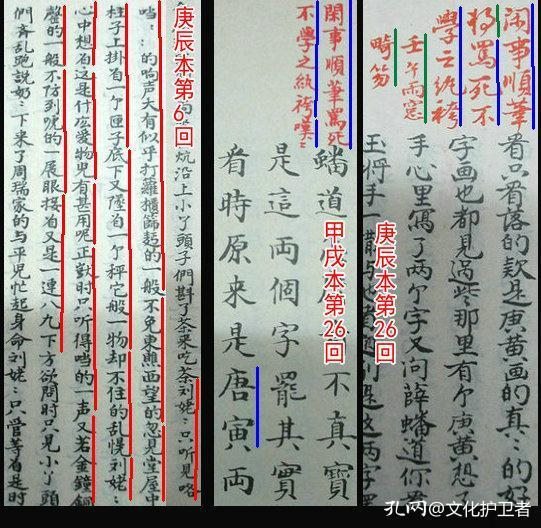 庚辰本第6回
炕沿上小丫頭子們斟了茶來吃茶劉姥〻只听見咯
噹〻的响声大有似乎打籮櫃篩麵的一般不免東瞧西望的忽見堂屋中
柱子上掛着一个匣子底下又墜着一个秤它般一物却不住的乱愰劉姥〻
心中想着這是什庅愛物児有甚用呢正獃時只听得噹的一声又若金鐘銅
磬的一般不防到唬的一展眼接着又是一連八九下方欲問時只見小丫頭
們斉乱跑說奶〻下来了周瑞家的与平児忙起身命刘姥〻只管等着是时
甲戌本第26回
閑事順筆罵死
不學之紈袴嘆〻
蟠道 不真寶
是這兩個字罷其實
看時原来是唐寅两
庚辰本第26回
闲事順筆
将罵死不
學之紈袴
壬午雨窓
畸笏
看只看落的款是庚黄画的真〻的好
字画也都見過些那里有个庚黄想了
手心里寫了两个字又问薛蟠道你看
玉将手一撒与 是这两字罢
孔网@文化护卫者